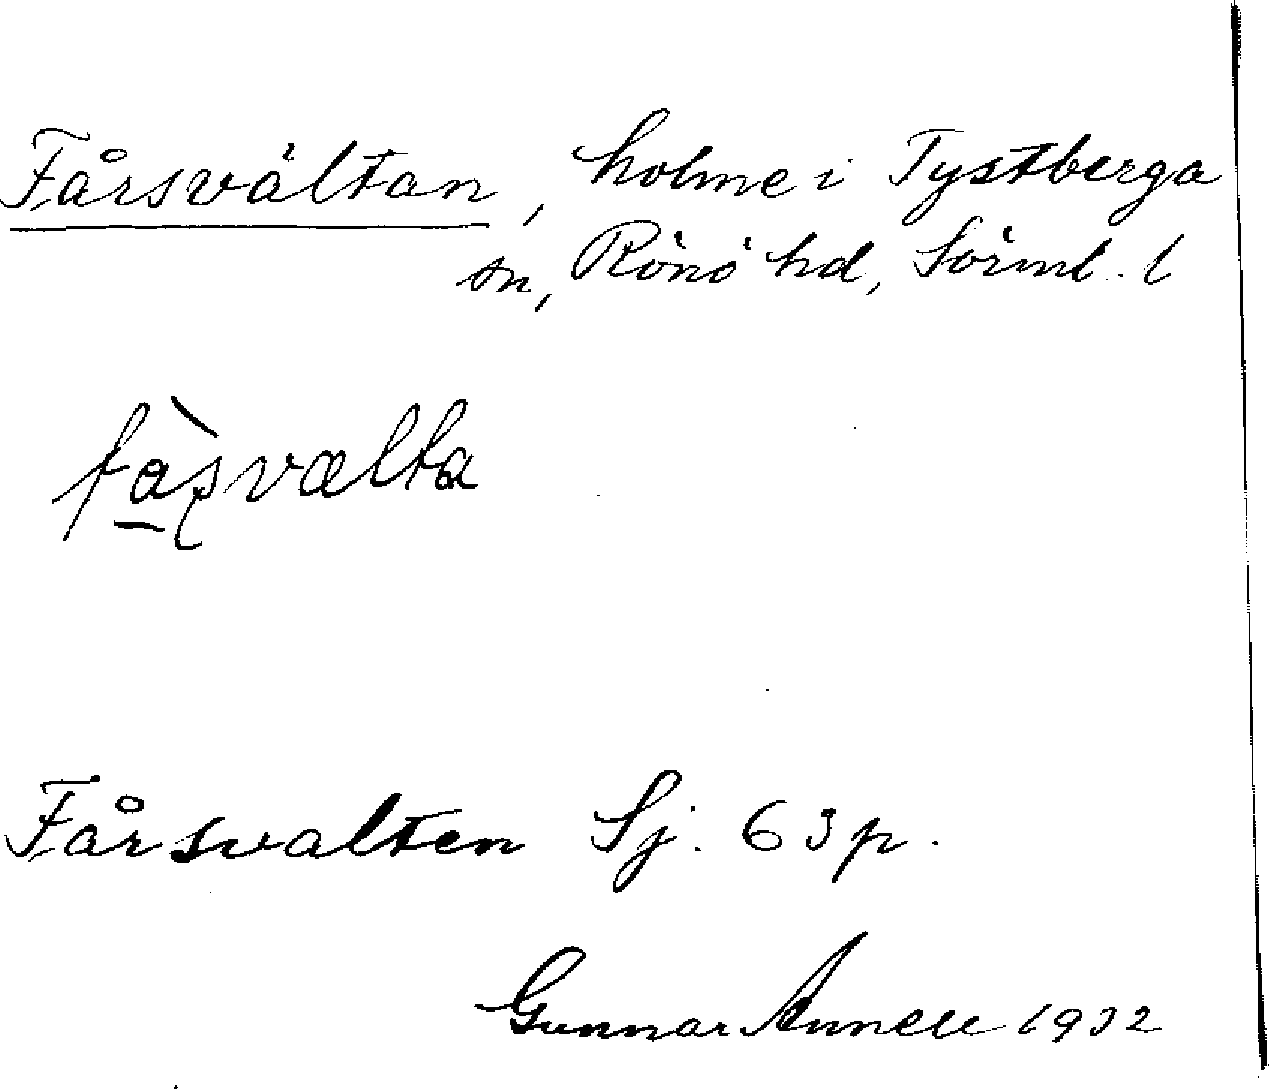 Fårsvältan, holme i Tystberga
sn, Rönö hd, Sörml. l
fàʂvælta
Fårsvalten Sj. 63 p.
Gunnar Annell 1932